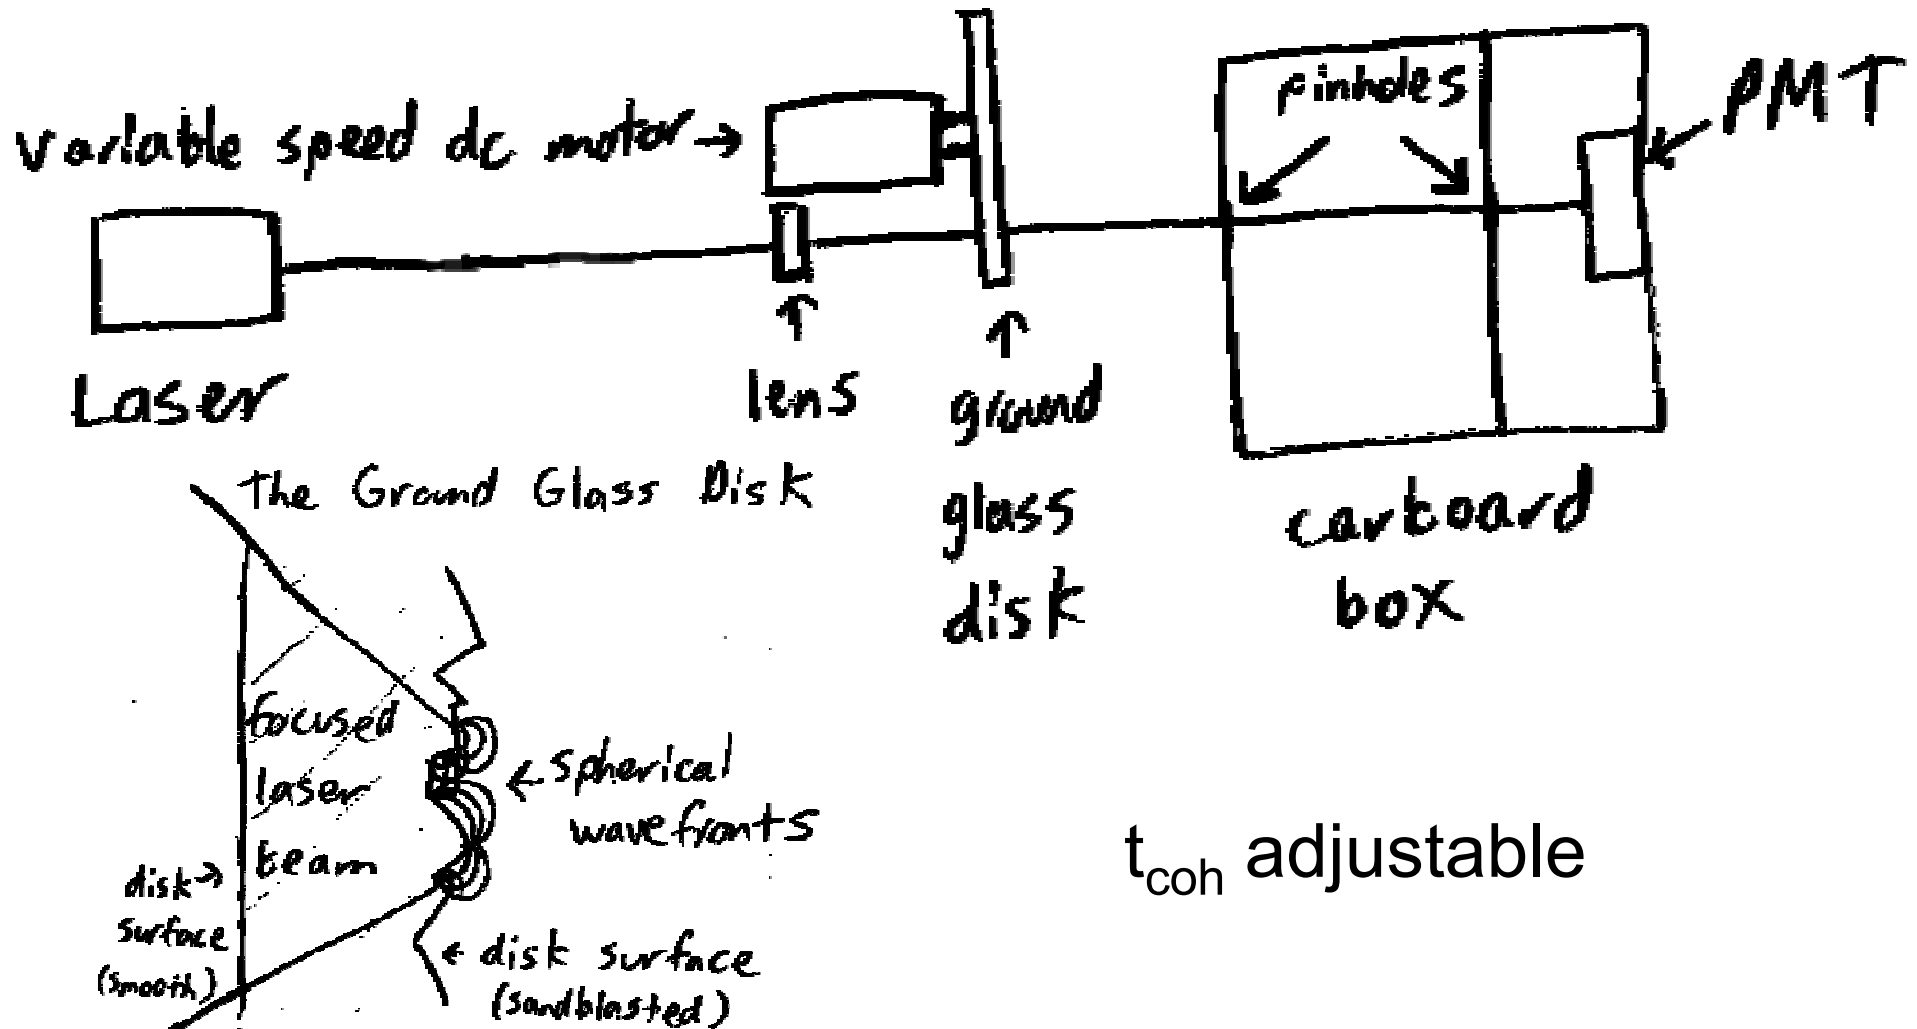 variable speed dc motor→
pinholes
PMT
Laser
lens
ground
glass
disk
carboard
box
The Ground Glass Disk
focused
laser
beam
spherical
wavefronts
disk
surface
(smooth)
disk surface
(sandblasted)
t_coh adjustable